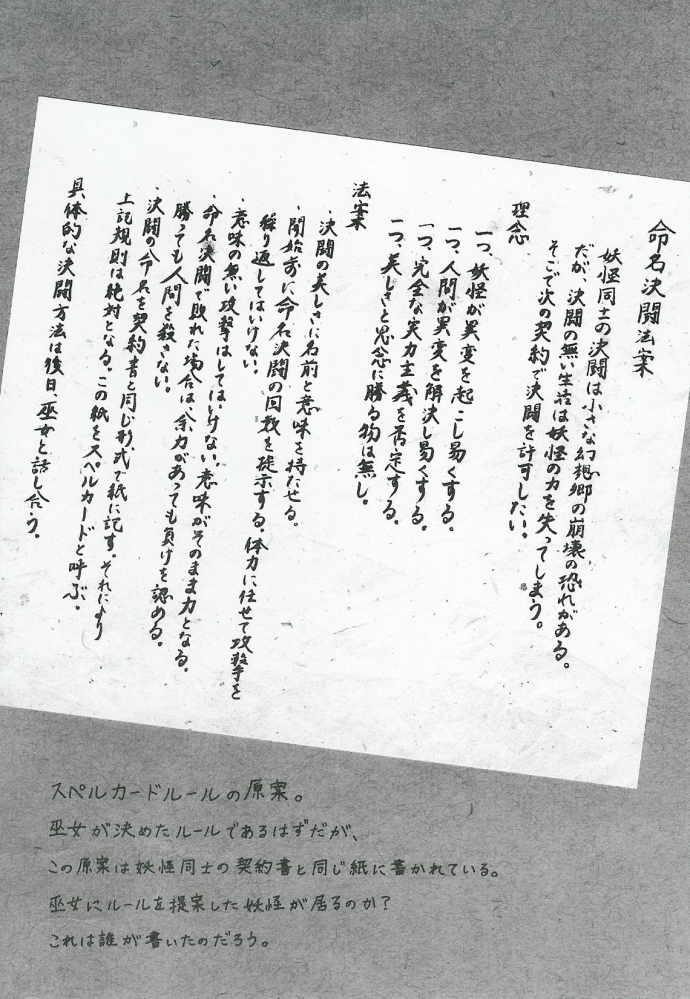 命名決闘法案
妖怪同士の決闘は小さな幻想郷の崩壊の恐れがある。
だが、決闘の無い生活は妖怪の力を失ってしまう。
そこで次の契約で決闘を許可したい。
理念
一つ、妖怪が異変を起こし易くする。
一つ、人間が異変を解決し易くする。
一つ、完全な実力主義を否定する。
一つ、美しさと思念に勝る物は無し。
法案
・決闘の美しさに名前と意味を持たせる。
・開始前に命名決闘の回数を提示する。体力に任せて攻撃を
繰り返してはいけない。
・意味の無い攻撃はしてはいけない。意味がそのまま力となる。
・命名決闘で敗れた場合は、余力があっても負けを認める。
勝っても人間を殺さない。
・決闘の命名を契約書と同じ形式で紙に記す。それにより
上記規則は絶対となる。この紙をスペルカードと呼ぶ。
具体的な決闘方法は後日、巫女と話し合う。
スペルカードルールの原案。
巫女が決めたルールであるはずだが、
この原案は妖怪同士の契約書と同じ紙に書かれている。
巫女にルールを提案した妖怪が居るのか?
これは誰が書いたのだろう。